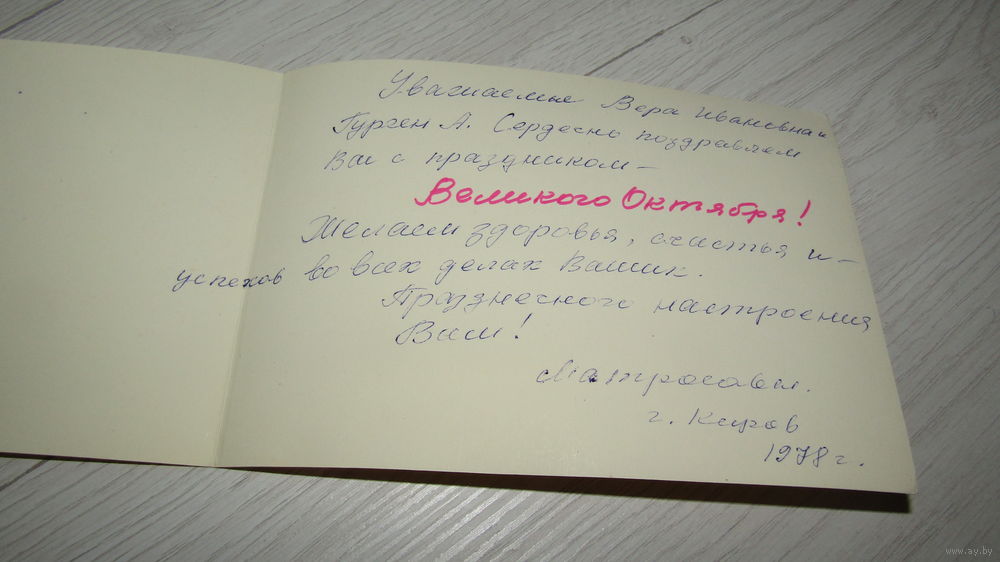 Уважаемые Вера Ивановна и
Гурген А. Сердечно поздравляем
Вас с праздником –
Великого Октября!
Желаем здоровья, счастья и –
успехов во всех делах Ваших.
Празднечного настроения
Вам!
Матросовы.
г. Киров
1978 г.
www.ay.by